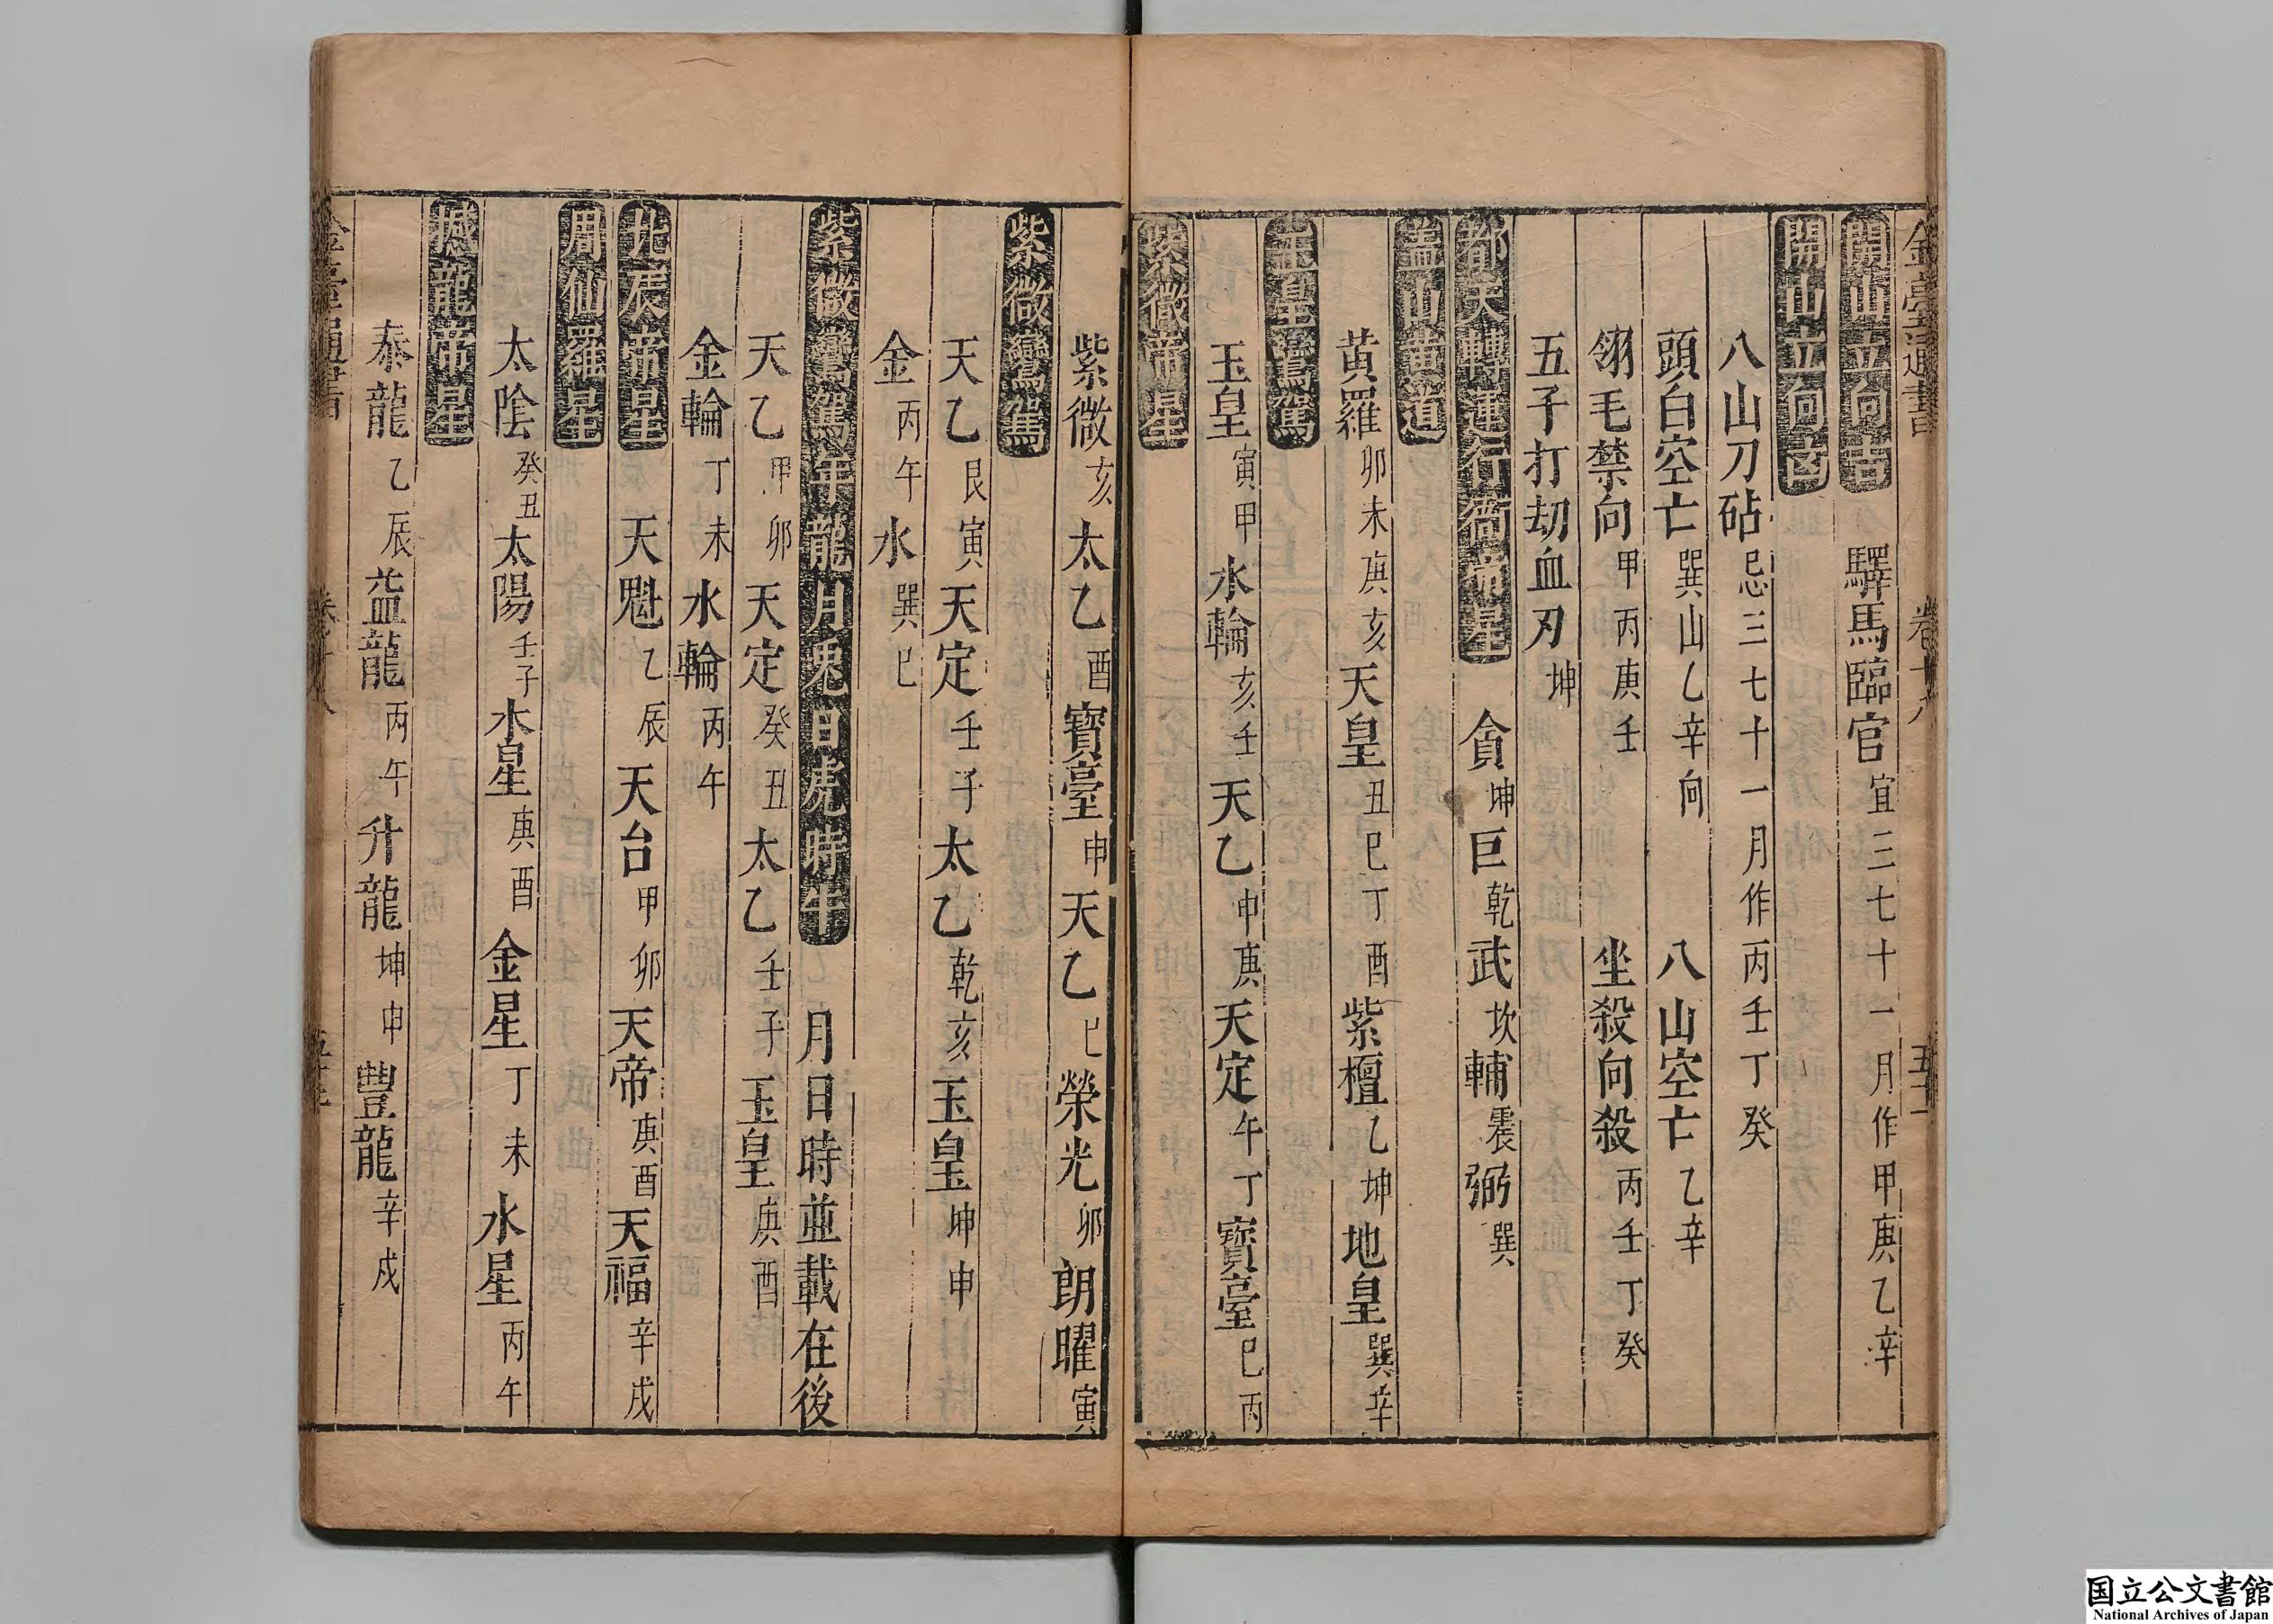 金臺通書 卷十八 五十一
開山立向吉 驛馬臨官 宜三七十一月作甲庚乙辛
開山立向凶
八山刀砧 忌三七十一月作丙壬丁癸
頭白空亡 巽山乙辛向 八山空亡 乙辛
翎毛禁向 甲丙庚壬 坐殺向殺 丙壬丁癸
五子打劫血刃 坤
都天轉運行衙帝星 貪 坤 巨 乾 武 坎 輔 震 弼 巽
蓋山黃道
黃羅 卯未庚亥 天皇 丑巳丁酉 紫檀 乙坤 地皇 巽辛
玉皇鸞駕
玉皇 寅甲 水輪 亥壬 天乙 申庚 天定 午丁 寶臺 巳丙
紫微帝星
紫微 亥 太乙 酉 寶臺 申 天乙 巳 榮光 卯 朗曜 寅
紫微鸞駕
天乙 艮寅 天定 壬子 太乙 乾亥 玉皇 坤申
金 丙午 水 巽巳
紫微鸞駕年龍月兔日虎時牛 月日時並載在後
天乙 甲卯 天定 癸丑 太乙 壬子 玉皇 庚酉
金輪 丁未 水輪 丙午
北辰帝星 天魁 乙辰 天台 甲卯 天帝 庚酉 天福 辛戌
周仙羅星
太陰 癸丑 太陽 壬子 木星 庚酉 金星 丁未 水星 丙午
撼龍帝星
泰龍 乙辰 益龍 丙午 升龍 坤申 豐龍 辛戌